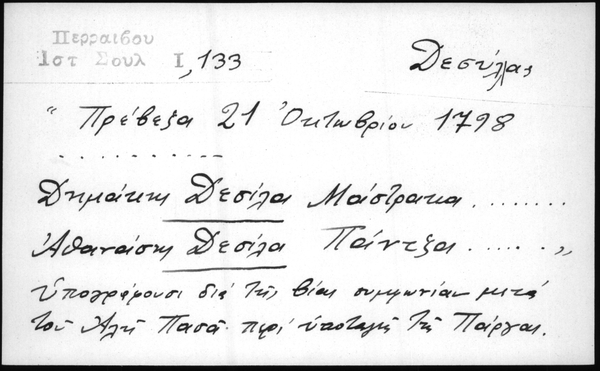 Περραιβου
Ιστ Σουλ Ι, 133
Δεσύλας
“ Πρέβεζα 21 Ὀκτωβρίου 1798
. . . . . . . . . .
Δημάκης Δεσίλα Μάστρακα . . . . . . .
Ἀθανάσης Δεσίλα Πάντζα . . . . . . „
ὑπογράφουσι διὰ τῆς βίας συμφωνίαν μετὰ
τοῦ Ἀλῆ Πασᾶ περί ὑποταγῆς τῆς Πάργας.